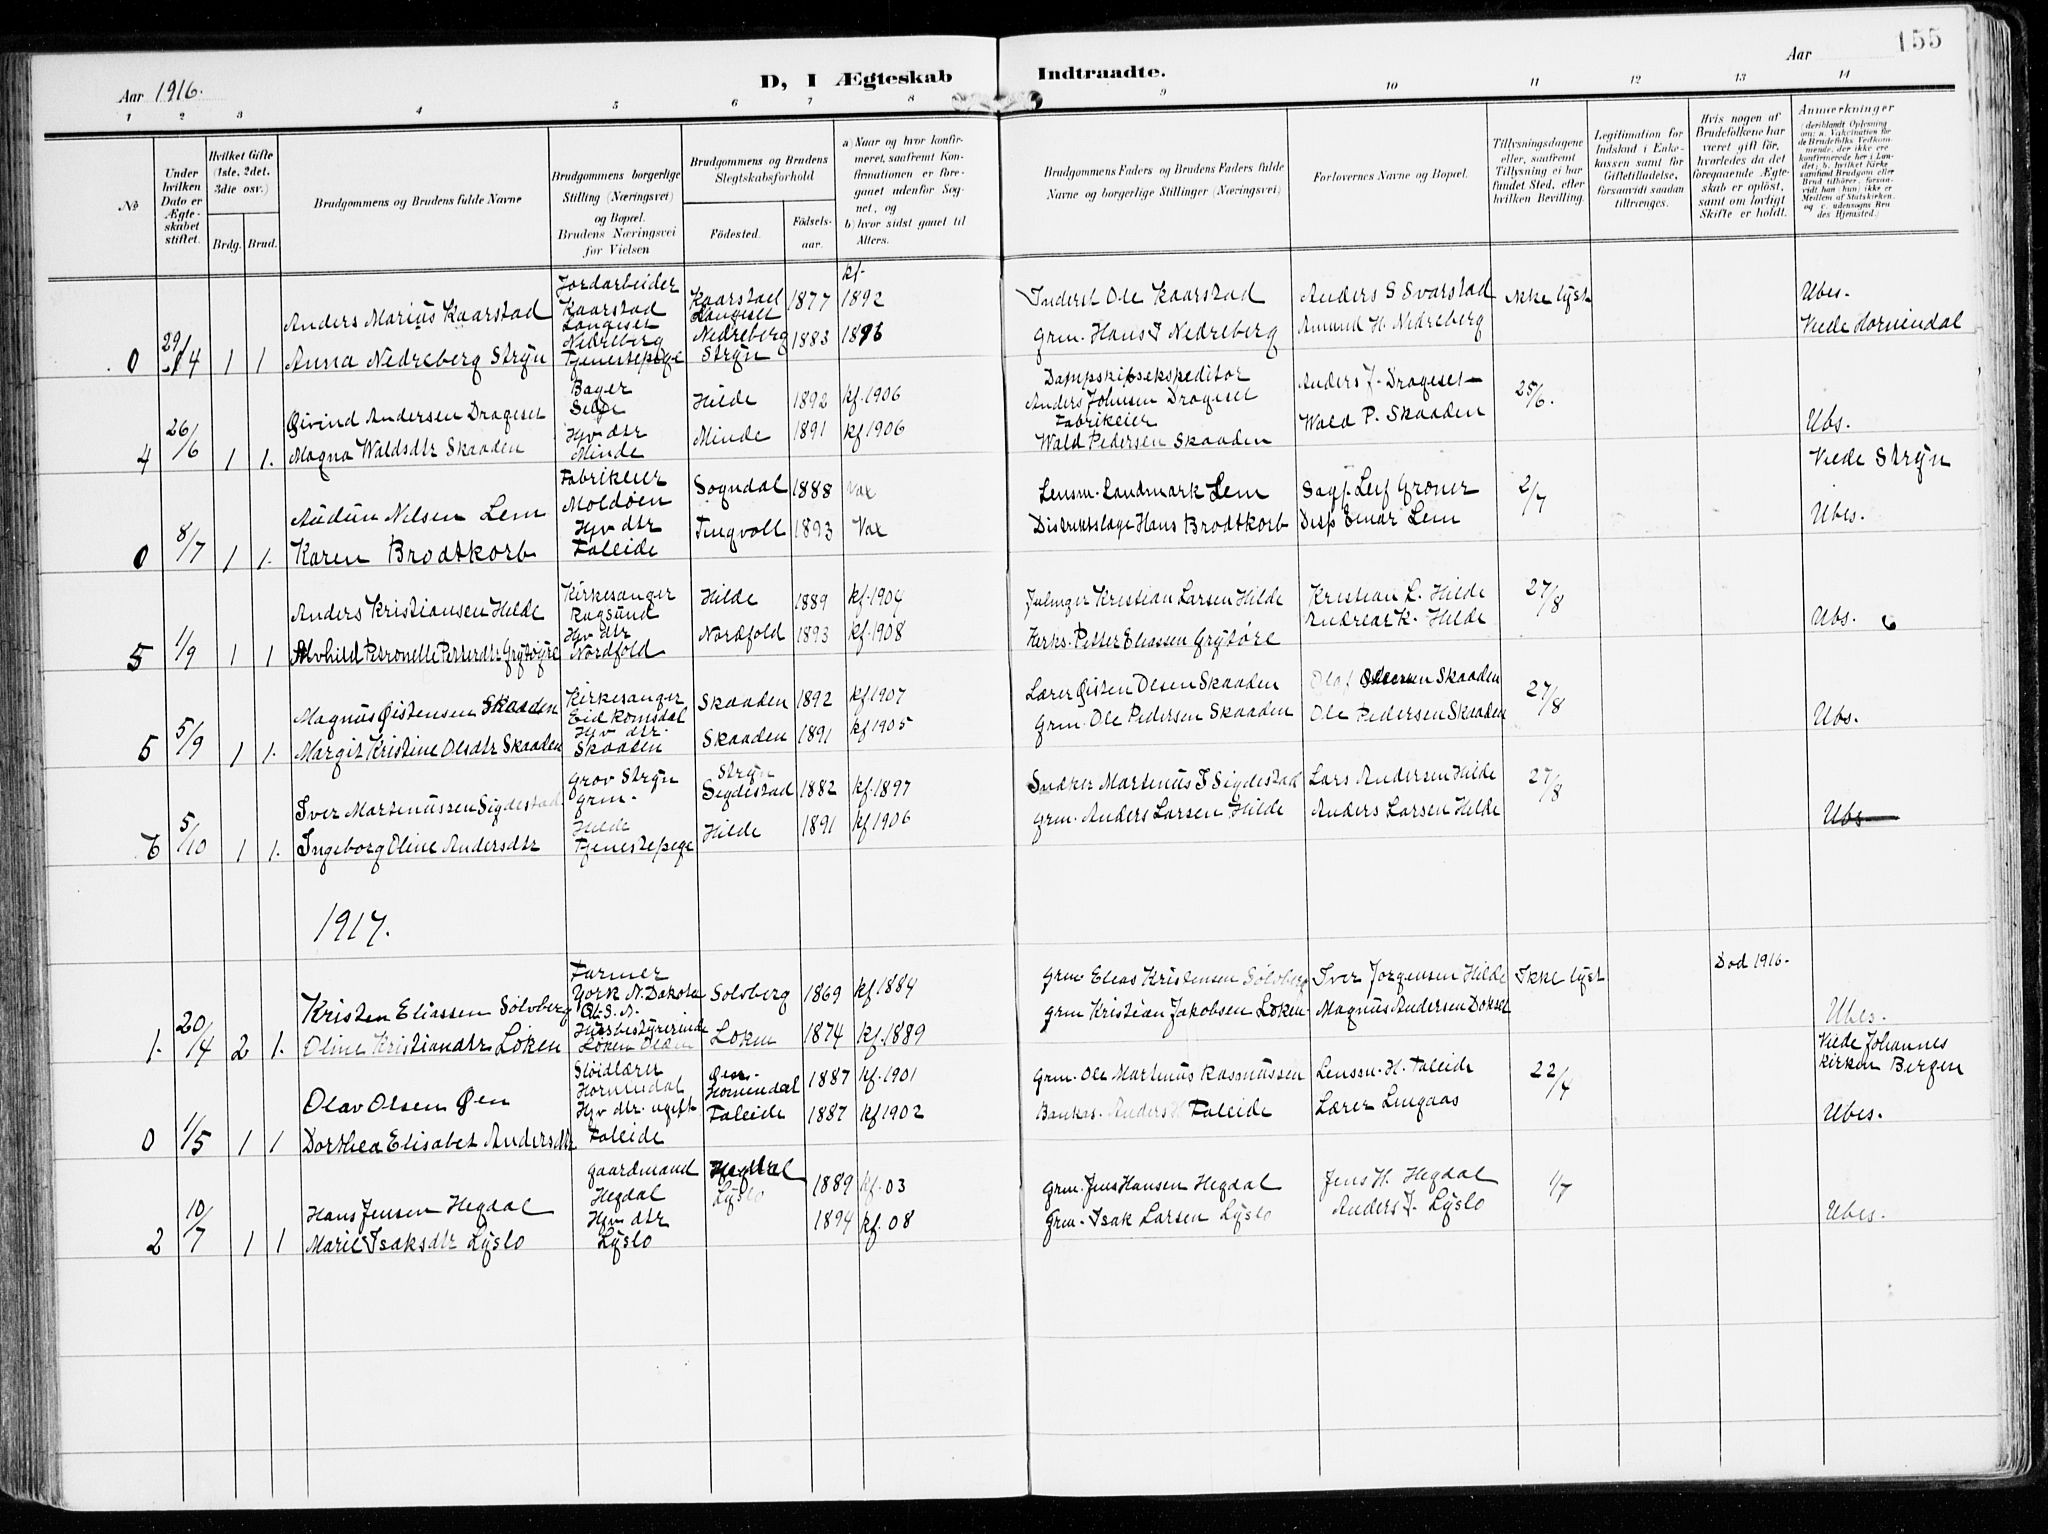 155
Aar 1916.
D, I Ægteskab Indtraadte.
Aar
1 2 3 4 5 6 7 8 9 10 11 12 13 14
No
Under hvilken Dato er Ægteskabet stiftet.
Hvilket Gifte (1ste, 2det, 3die osv.)
Brdg. Brud.
Brudgommens og Brudens fulde Navne
Brudgommens borgerlige Stilling (Næringsvei) og Bopæl. Brudens Næringsvei før Vielsen
Brudgommens og Brudens Slegtskabsforhold
Födested. Födselsaar.
a) Naar og hvor konfirmeret, saafremt Konfirmationen er foregaaet udenfor Sognet, og
b) hvor sidst gaaet til Alters.
Brudgommens Faders og Brudens Faders fulde Navne og borgerlige Stillinger (Næringsvei)
Forlovernes Navne og Bopæl.
Tillysningsdagene eller, saafremt Tillysning ei har fundet Sted, efter hvilken Bevilling.
Legitimation for Indskud i Enkekassen samt for Giftetilladelse, forsaavidt saadan tiltrænges.
Hvis nogen af Brudefolkene har været gift før, hvorledes da det foregaaende Ægteskab er opløst, samt om lovligt Skifte er holdt.
Anmerkninger
(deriblandt Oplysning om: a. Vakcination for de Brudefolks Vedkommende, der ikke ere konfirmerede her i Landet; b. hvilket Kirkesamfund Brudgom eller Brud tilhører, forsaavidt han (hun) ikke er Medlem af Statskirken, og c. udensogns Brudes Hjemsted.)
Jordarbeider kf.
Anders Marius Kaarstad Kaarstad Langeset Kaarstad Langeset 1877 1892 Inderst Ole Kaarstad Anders S Svarstad Ikke lyst Ubes.
0 29/4 1 1 Anna Nedreberg Stryn Nedreberg Tjenestepige Nedreberg Stryn 1883 1896 Grm. Hans J Nedreberg Amund H. Nedreberg Viede Hornindal
Øivind Andersen Drageset Bager Selje Hilde 1892 kf. 1906 Dampskibsekspeditor Anders Johnsen Drageset Anders J. Drageset 25/6. Ubs.
4 26/6 1 1. Magna Waldsdtr Skaaden Hjv dtr Minde Minde 1891 kf 1906 Fabrikeier Wald Pedersen Skaaden Wald P. Skaaden
Viede Stryn
Audun Nilsen Lem Fabrikeier Moldøen Sogndal 1888 Vax Lensm. Landmark Lem Sagf. Leif Groner 2/7 Ubes.
0 8/7 1 1. Karen Brodtkorb Hjv dtr Faleide Tingvoll 1893 Vax Distriktslæge Hans Brodtkorb Disp Einar Lem
Anders Kristiansen Hilde Kirkesanger Hilde 1889 kf. 1904 Kristian Larsen Hilde Kristian L. Hilde 27/8
5 1/9 1 1 Alvhild Petronelle Petterdtr Grytøyre Hjv dtr Nordfold Nordfold 1893 kf. 1908 Kirks. Petter Eliassen Grytøre Andreas K. Hilde Ubs.
Magnus Øistensen Skaaden Kirkesanger Eid Romsdal Skaaden 1892 kf 1907 Lærer Øisten Olsen Skaaden Olaf Skaaden 27/8
5 5/9 1 1. Margit Kristine Olsdtr Skaaden Hjv dtr. Skaaden Skaaden 1891 kf 1905 Grm. Ole Pedersen Skaaden Ole Pedersen Skaaden Ubs.
Iver Martinussen Sigdestad Grov Stryn Grm. Stryn Sigdestad 1882 kf. 1897 Martinus I Sigdestad Lars Andersen Hilde 27/8
6 5/10 1 1. Ingeborg Oline Andersdtr Hilde Tjenestepige Hilde 1891 kf 1906 Grm. Anders Larsen Hilde Anders Larsen Hilde Ubs
1917.
Kristen Eliassen Sølvberg Farmer York N. Dakota Solvberg 1869 kf. 1884 Grm Elias Kristensen Sølvberg Iver Jorgensen Hilde Ikke lyst Død 1916.
1. 20/4 2 1. Oline Kristiandtr Løken Husbestyrerinde Løken Olden Loken 1874 kf. 1889 Grm Kristian Jakobsen Loken Magnus Andersen Ubes.
Viede Johannes kirken Bergen
Olav Olsen Øen Sløidlærer Hornindal Øen Hornindal 1887 kf. 1901 Grm. Ole Martinus Rasmussen Lensm. H. Faleide 22/4
0 1/5 1 1 Dorthea Elisabet Andersdtr Hjv dtr. ugift Faleide Faleide 1887 kf 1902 Anders H Faleide Lærer Lingaas Ubes.
Hans Jensen Hegdal Gaardmand Hegdal Hegdal 1889 kf. 03 Grm. Jens Hansen Hegdal Jens H. Hegdal 1/7
2 10/7 1 1 Marie Isaksdtr Lyslo Hjv dtr Lyslo Lyslo 1894 kf. 08 Grm. Isak Larsen Lyslo Anders J. Lyslo Ubes.